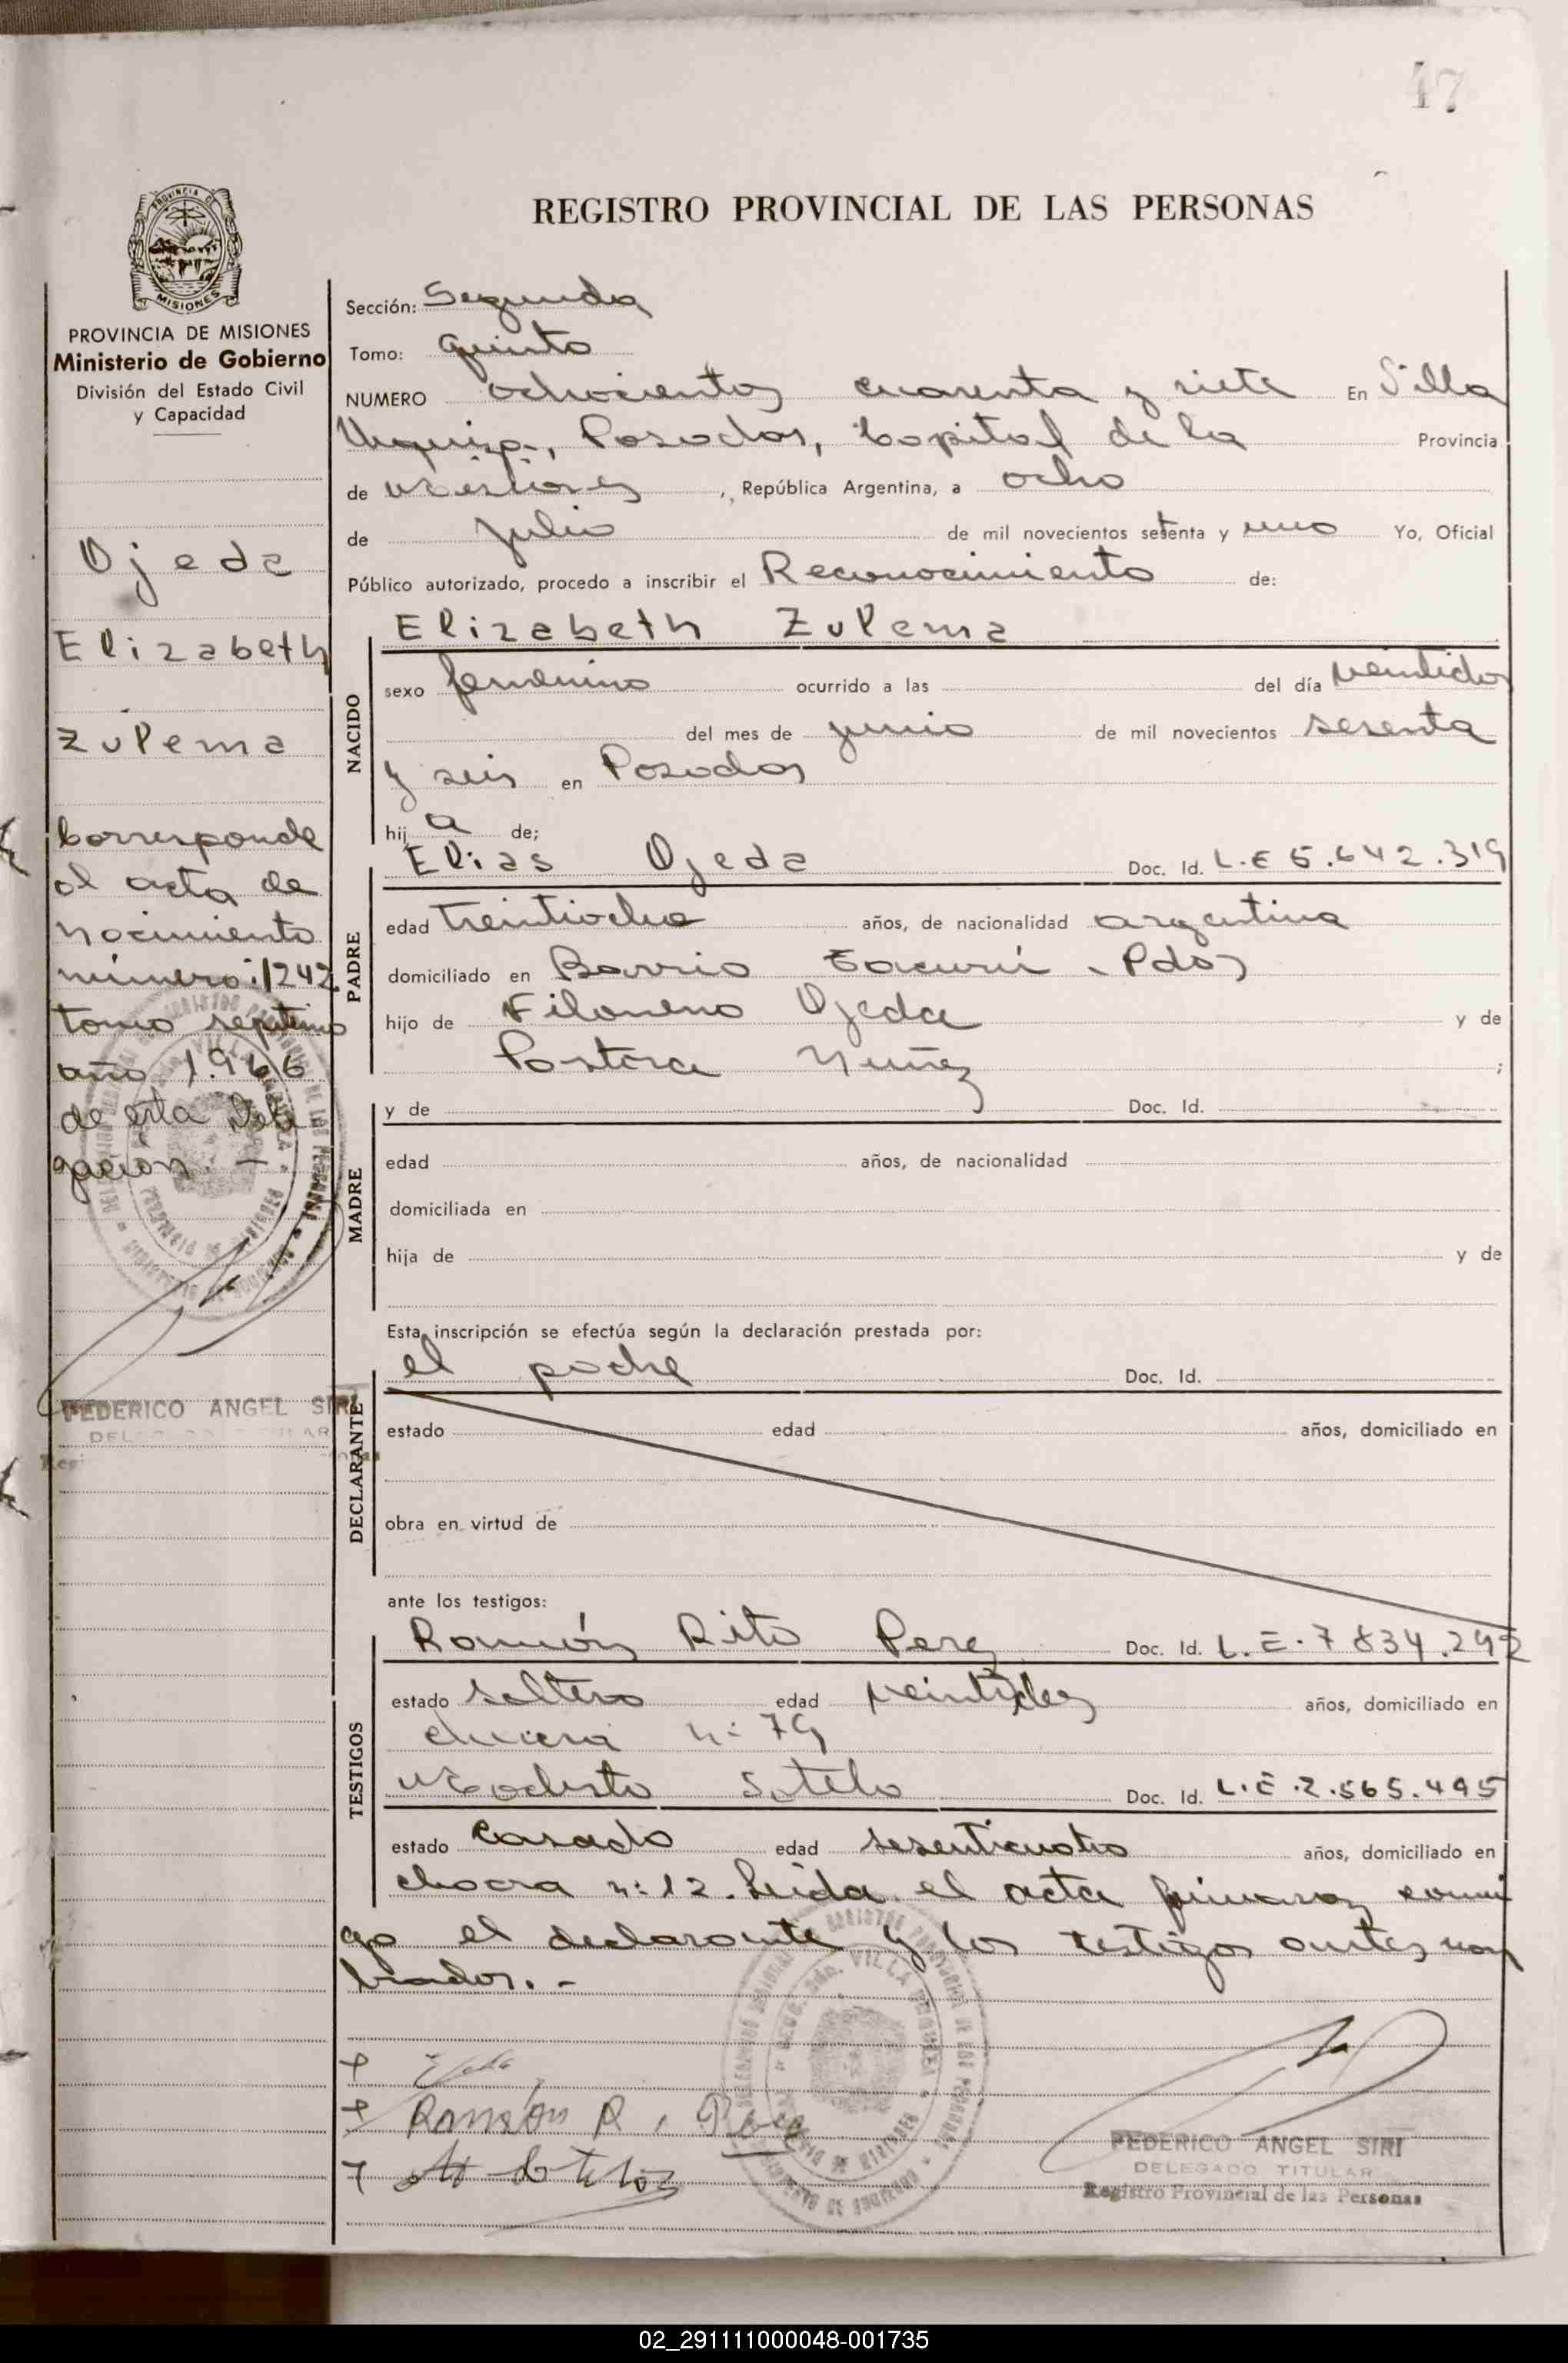 47
REGISTRO PROVINCIAL DE LAS PERSONAS
PROVINCIA
MISIONES
PROVINCIA DE MISIONES
Ministerio de Gobierno
División del Estado Civil
y Capacidad
Ojeda
Elizabeth
Zulema
Corresponde
al acta de
nacimiento
número: 1242
tomo septimo
año 1.966
de esta Dele
gación. -
FEDERICO ANGEL SIRI
Sección: Segunda
Tomo: Quinto
NUMERO ochocientos cuarenta y siete En Villa
Urquiza, Posadas, Capital de la Provincia
de Misiones, República Argentina, a ocho
de julio de mil novecientos setenta y uno Yo, Oficial
Público autorizado, procedo a inscribir el Reconocimiento de:
Elizabeth Zulema
NACIDO
sexo femenino ocurrido a las del día veintidos
del mes de junio de mil novecientos sesenta
y seis en Posadas
hij a de;
Elias Ojeda Doc. Id. L.E 5.642.319
PADRE
edad treintiocho años, de nacionalidad argentina
domiciliado en Barrio Tacurú - Pdas
hijo de Filomeno Ojeda y de
Pastora Nuñez ;
MADRE
y de Doc. Id.
edad años, de nacionalidad
domiciliada en
hija de y de
Esta inscripción se efectúa según la declaración prestada por:
el padre Doc. Id.
DECLARANTE
estado edad años, domiciliado en
obra en virtud de
ante los testigos:
Ramón Rito Perez Doc. Id. L.E.7834.292
TESTIGOS
estado soltero edad años, domiciliado en
chacra n: 79
Modesto Sotelo Doc. Id. L.E.2.565.495
estado casado edad sesenticuatro años, domiciliado en
chacra n: 12. Leida el acta firmaron conmi
go el declarante y los testigos antes nom
brados. -
Ramón R. Perez
FEDERICO ANGEL SIRI
DELEGADO TITULAR
Registro Provincial de las Personas
02_291111000048-001735